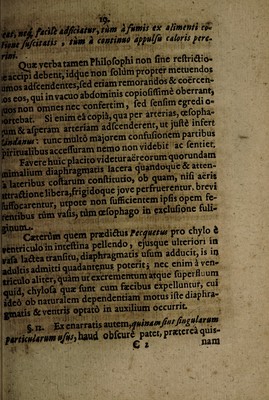 19.
eas, neq; facile adficiatur, tum à fumis ex alimenti co-
ctione suscitatis, tum à continuo appulsu caloris pere-
rini.
Quæ verba tamen Philosophi non sine restrictio-
e accipi debent, idque non solùm propter metuendos
umos adscendentes, sed etiam remorandos & coërcen-
os eos, qui in vacuo abdominis copiosissimè oberrant,
uos non omnes nec confertim, sed sensim egredi o-
ortebat. Si enim eâ copiâ, qua per arterias, œsopha-
gum & asperam arteriam adscenderent, ut justè infert
Landanus: tunc multò majorem confusionem partibus
spiritualibus accessuram nemo non videbit ac sentiet.
Favere huic placito videtur aëreorum quorundam
nimalium diaphragmata lacera quandoque & atten-
à lateribus costarum constituto, ob quam, nisi aëris
attractione libera, frigidoque jove perfruerentur, brevi
suffocarentur, utpote non sufficientem ipsis opem fe-
rentibus tùm vasis, tùm œsophago in exclusione fuli-
ginum.
Cæterùm quem prædictus Pecquetus pro chylo è
ventriculo in intestina pellendo, ejusque ulteriori in
vasa lactea transitu, diaphragmatis usum adducit, is in
adultis admitti quadantenus poterit; nec enim à ven-
triculo aliter, quàm ut excrementum atque superfluum
quid, chylosa quæ sunt cum fæcibus expelluntur, cui
ideò ob naturalem dependentiam motus iste diaphra-
gmatis & ventris optatò in auxilium occurrit.
§. 12. Ex enarratis autem, quinam sint singularum
particularum usus, haud obscurè patet, prætereà quis-
C 2 nam